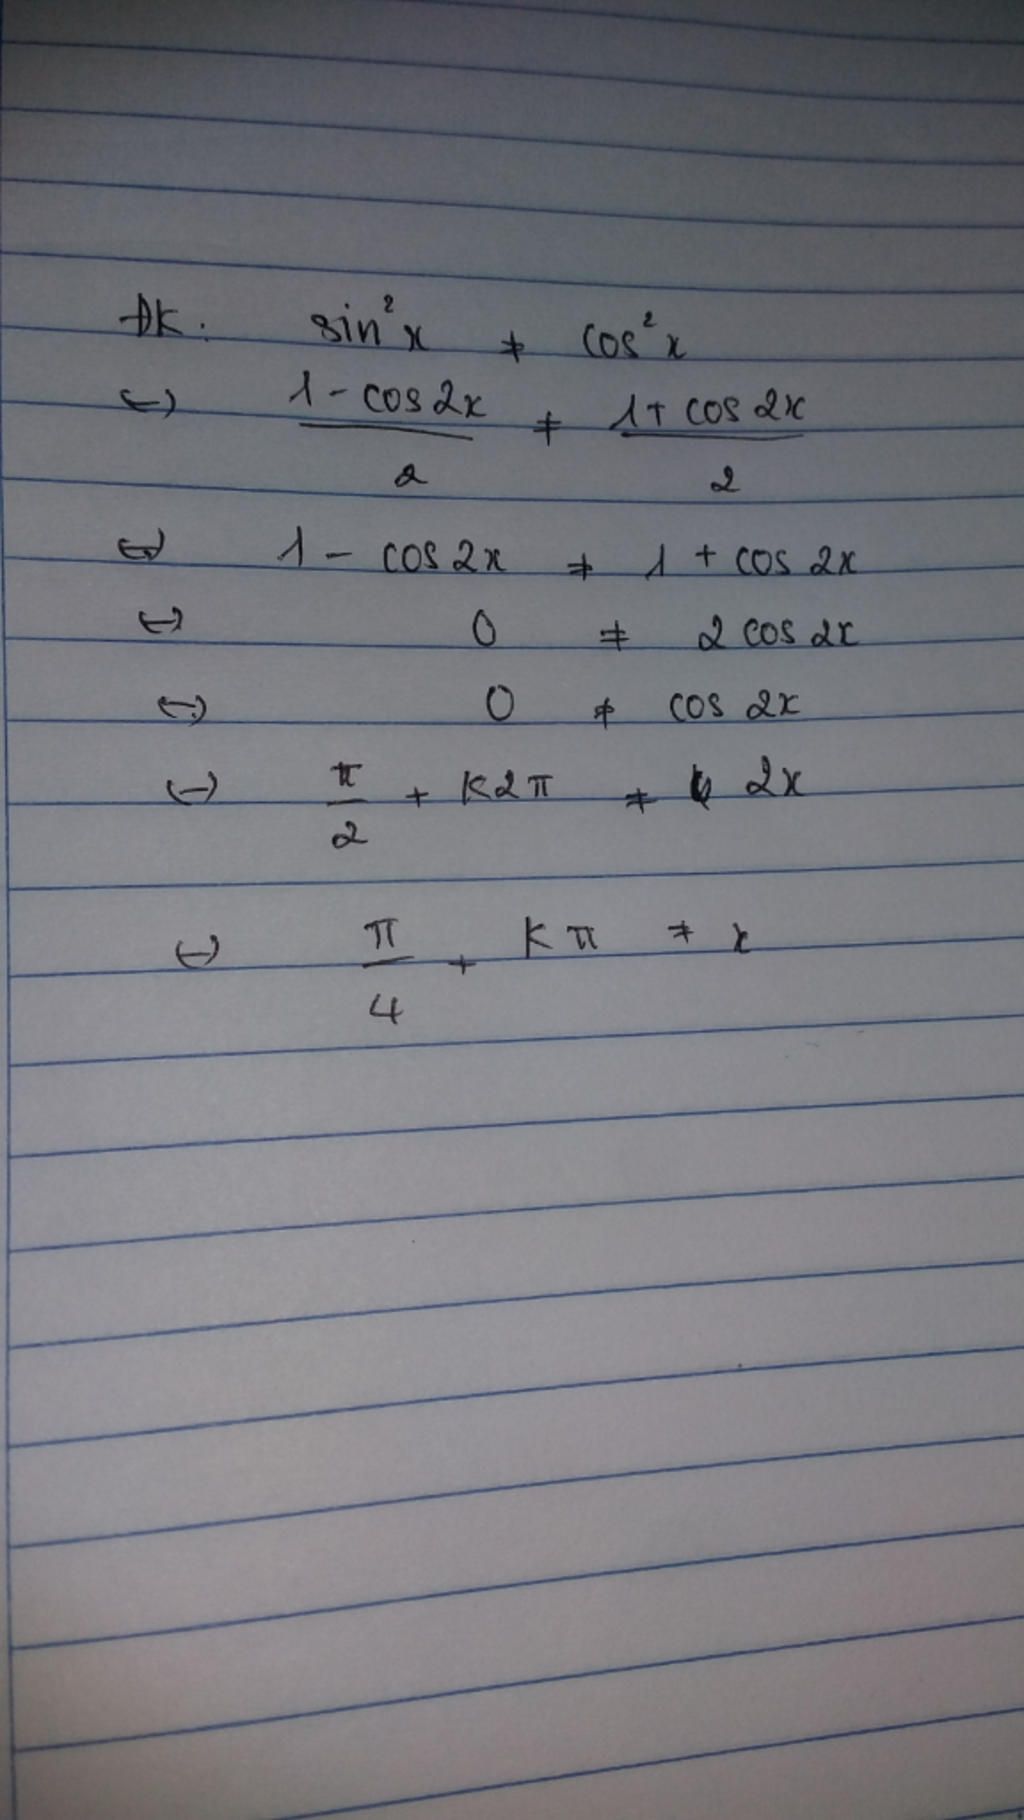 ĐK: sin²x ≠ cos²x
<=> (1 - cos2x)/2 ≠ (1 + cos2x)/2
<=> 1 - cos2x ≠ 1 + cos2x
<=> 0 ≠ 2 cos2x
<=> 0 ≠ cos2x
<=> π/2 + k2π ≠ 2x
<=> π/4 + kπ ≠ x